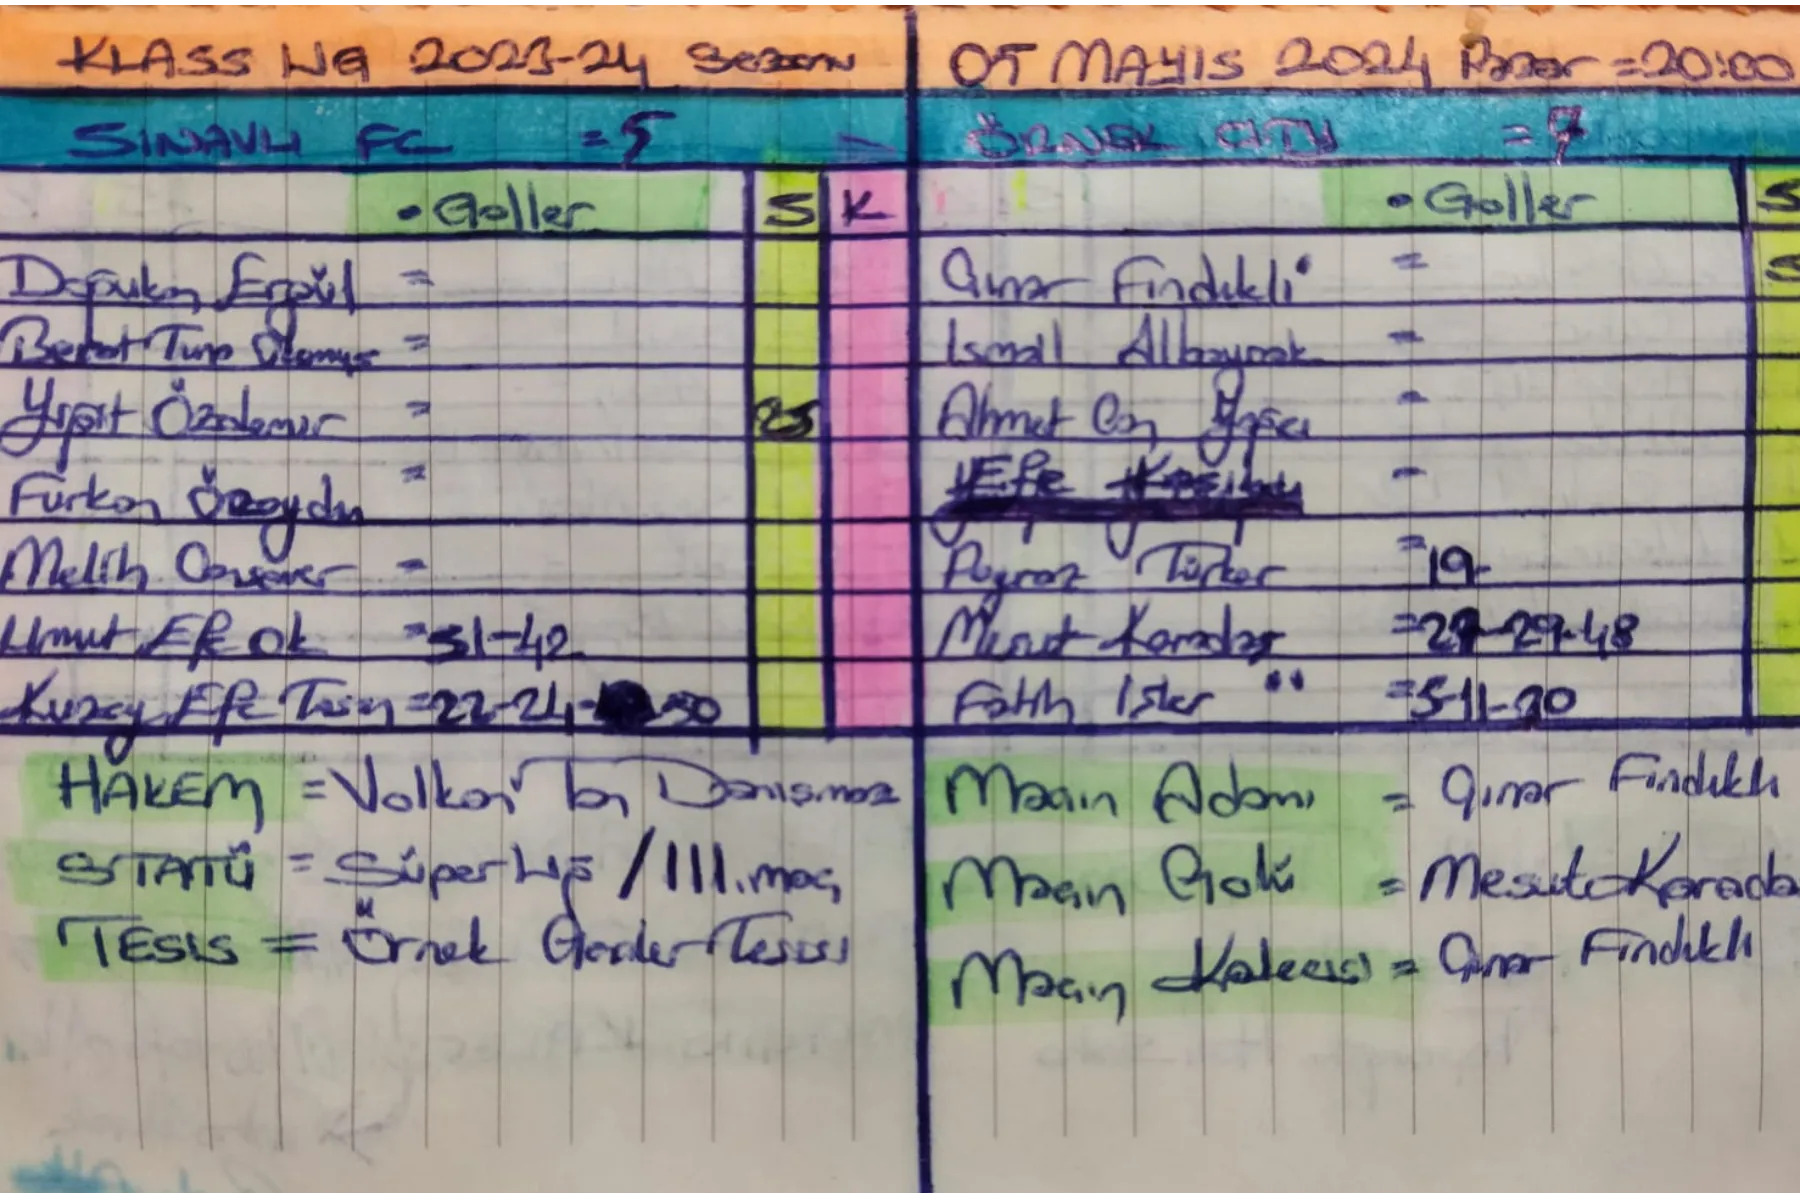 KLASS LİG 2023-24 Sezonu
05 MAYIS 2024 Pazar = 20:00
SINAVLI FC = 5
ÖRNEK CITY = 7
• Goller S K
• Goller S
Doğukan Ergül =
Çınar Fındıklı • = S
Berat Tuna =
İsmail Albayrak =
Yiğit Özdemir = 25
Ahmet Can Yağcı =
Furkan Özaydın =
Efe =
Melih =
Poyraz Türker = 19
Umut Efe Ok = 31-42
Mesut Karadaş = 27-29-48
Kuzey Efe = 22-24- -50
Fatih İsler •• = 5-11-20
HAKEM = Volkan Can Danışmaz
Maçın Adamı = Çınar Fındıklı
STATÜ = Süper Lig / III. maç
Maçın Golü = Mesut Karada
TESİS = Örnek Gençler Tesisi
Maçın Kalecisi = Çınar Fındıklı